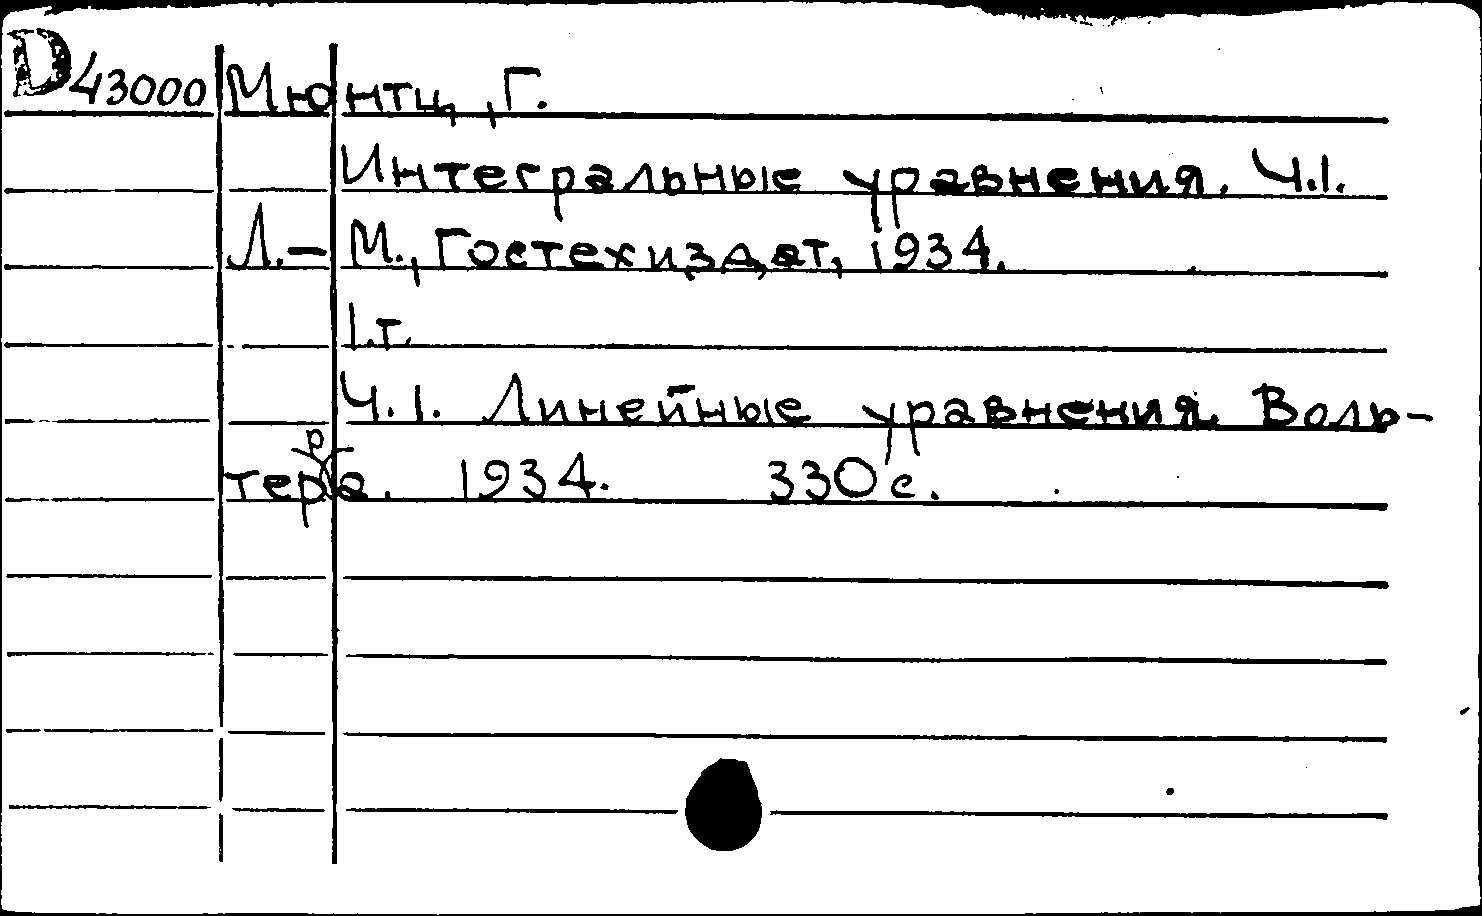 D43000 Мюнтц, Г.
Интегральные уравнения. Ч.1.
Л.- М., Гостехиздат, 1934.
1.т.
Ч.1. Линейные уравнения Воль-
терра. 1934. 330 с.